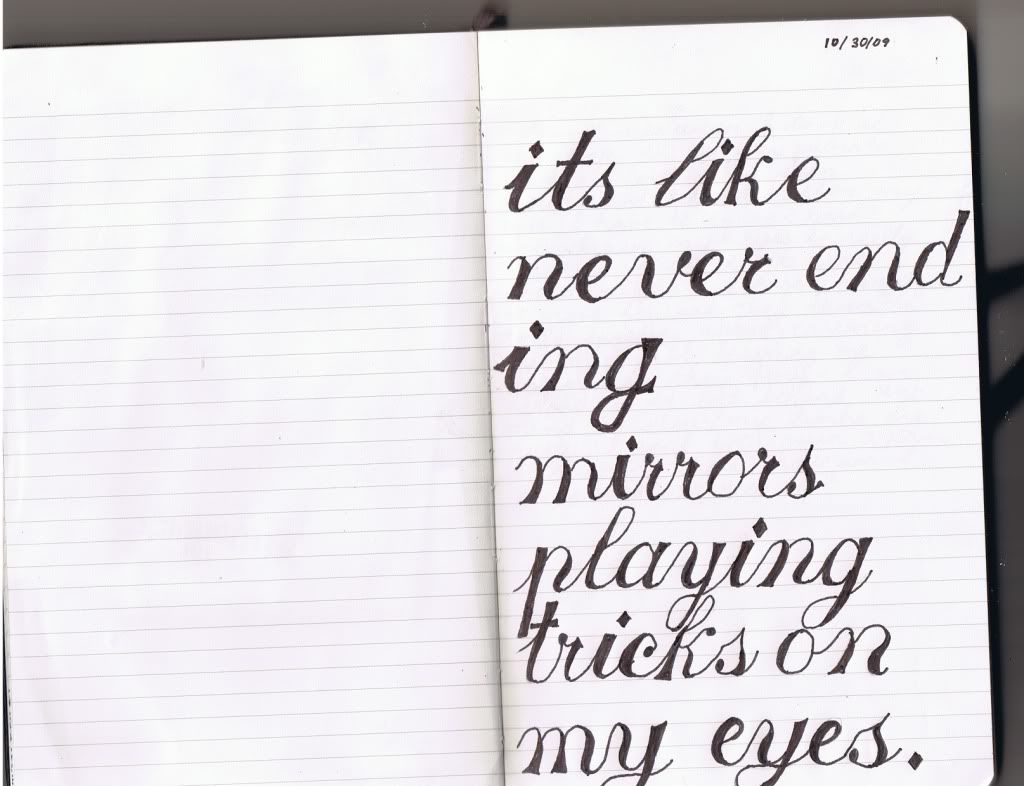 10/30/09
its like
never end
ing
mirrors
playing
tricks on
my eyes.